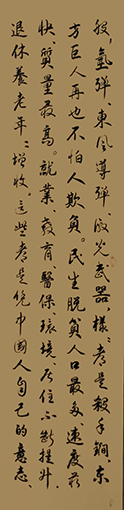 般,氫弹、東风導弹、激光武器,樣々都是殺手锏。東
方巨人再也不怕人欺負。民生脱貧人口最多,速度最
快、質量最高。就業、教育、醫保、環境、居住不断提升,
退休養老年々增收。這些都是凭中國人自己的意志、